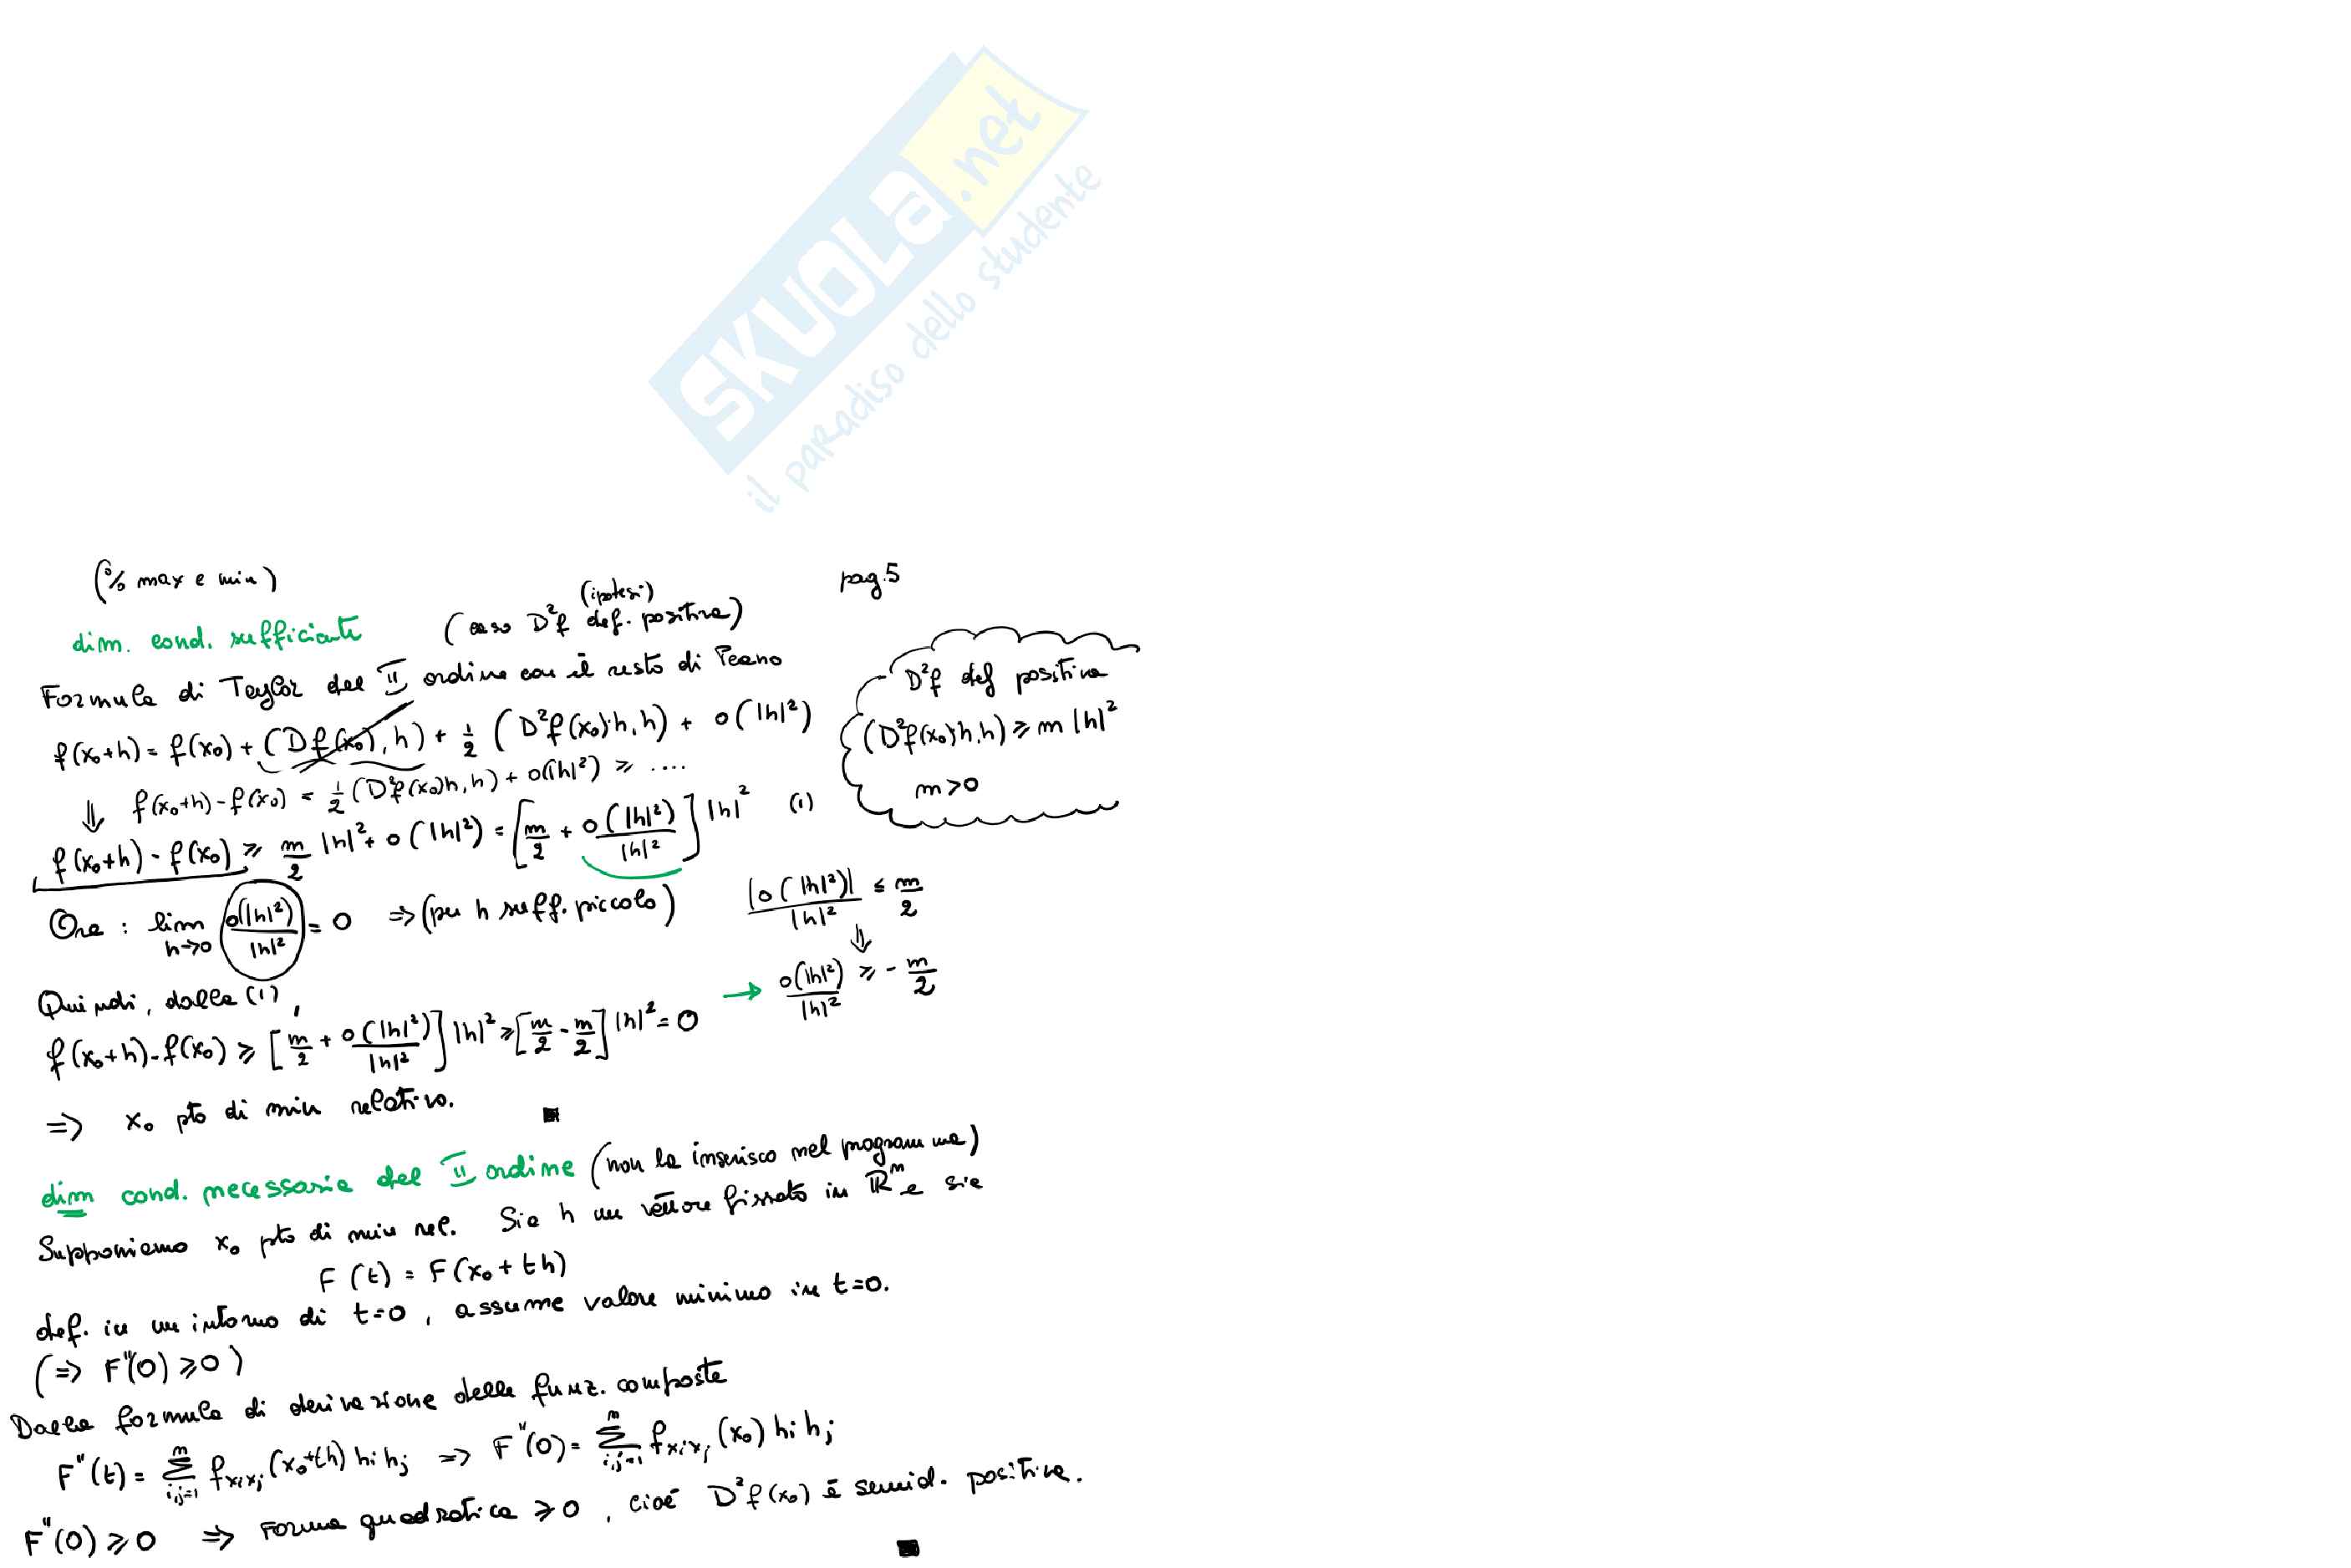 SKUOLA.net
il paradiso dello studente
(% max e min) pag. 5
dim. cond. sufficiente (caso D²f def. positiva) (ipotesi)
Formula di Taylor del II ordine con il resto di Peano
f(x₀+h) = f(x₀) + (Df(x₀), h) + 1/2 (D²f(x₀)·h, h) + o(|h|²)
⇓ f(x₀+h) - f(x₀) = 1/2 (D²f(x₀)h, h) + o(|h|²) ≥ ....
f(x₀+h) - f(x₀) ≥ m/2 |h|² + o(|h|²) = [m/2 + o(|h|²)/|h|²] |h|² (1)
D²f def positiva
(D²f(x₀)h, h) ≥ m |h|²
m>0
Ora : lim h→0 o(|h|²)/|h|² = 0 ⇒ (per h suff. piccolo) |o(|h|²)|/|h|² ≤ m/2
⇓
→ o(|h|²)/|h|² ≥ - m/2
Quindi, dalla (1),
f(x₀+h) - f(x₀) ≥ [m/2 + o(|h|²)/|h|²] |h|² ≥ [m/2 - m/2] |h|² = 0
⇒ x₀ pto di min relativo. ■
dim cond. necessaria del II ordine (non la inserisco nel programma)
Supponiamo x₀ pto di min rel. Sia h un vettore fissato in ℝⁿ e sia
F(t) = F(x₀ + th)
def. in un intorno di t=0, assume valore minimo in t=0.
(⇒ F"(0) ≥ 0)
Dalla formula di derivazione delle funz. composte
F"(t) = Σ i,j=1 n f xᵢxⱼ (x₀+th) hᵢ hⱼ ⇒ F"(0) = Σ i,j=1 n f xᵢxⱼ (x₀) hᵢ hⱼ
F"(0) ≥ 0 ⇒ Forma quadratica ≥ 0, cioé D²f(x₀) è semid. positiva.
■